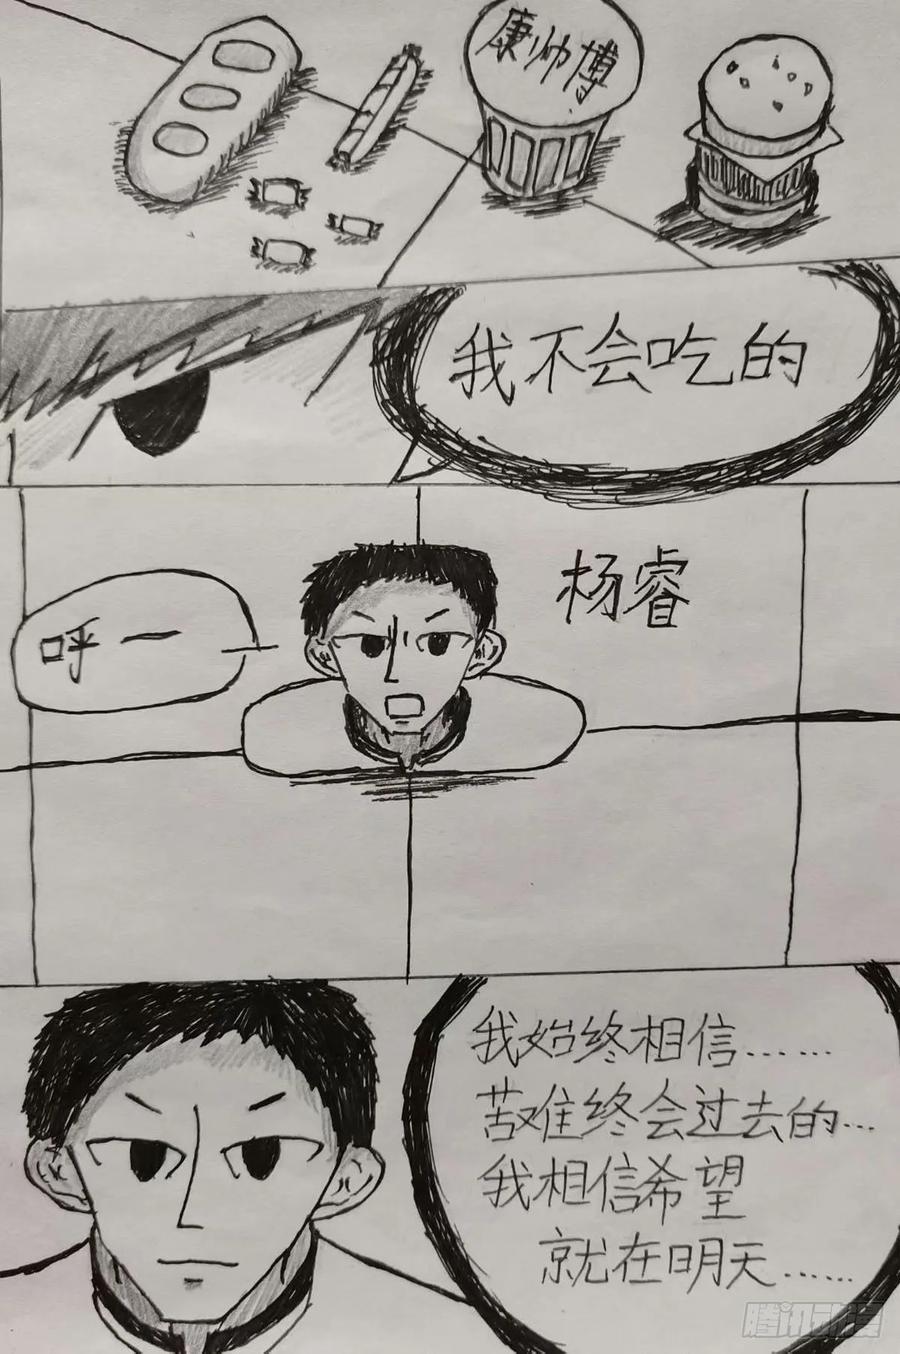 康帅博
我不会吃的
杨睿
呼一
我始终相信……
苦难终会过去的…
我相信希望
就在明天……
腾讯动漫